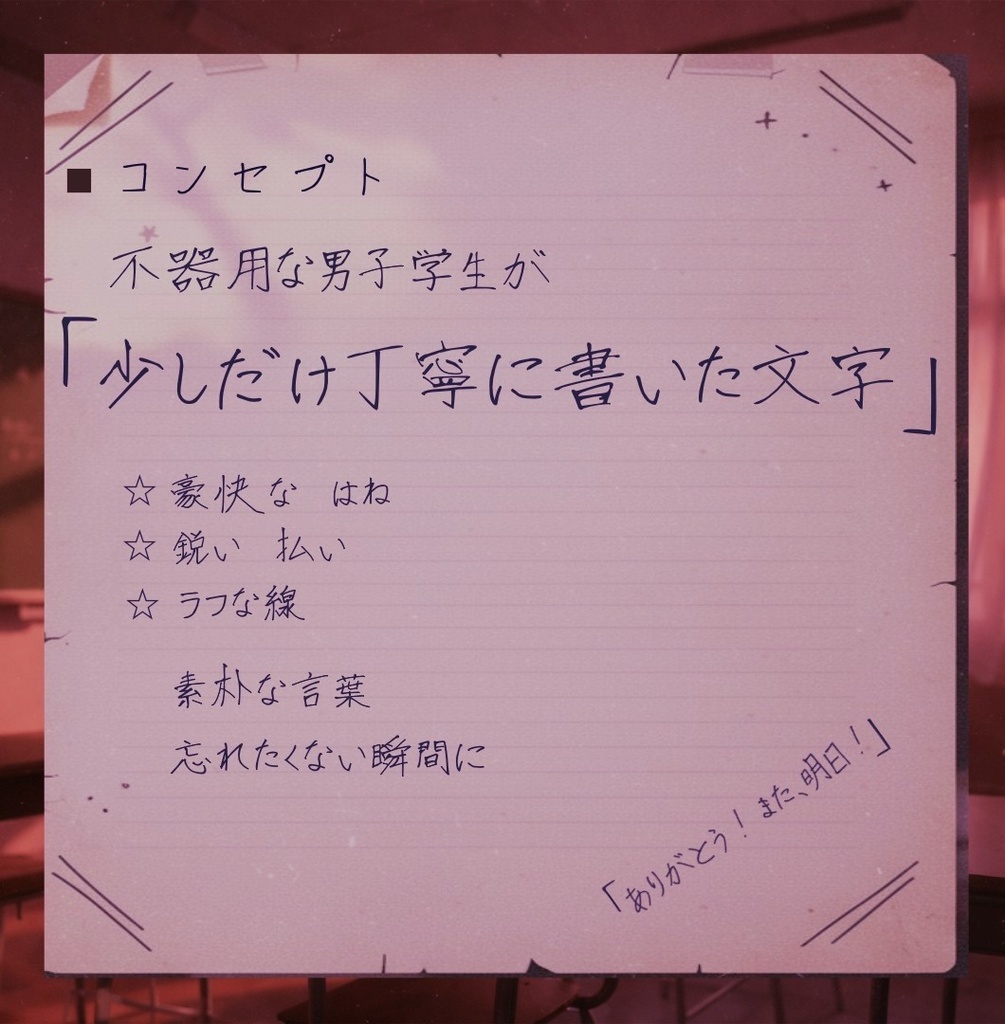 ■ コンセプト
不器用な男子学生が
「少しだけ丁寧に書いた文字」
☆ 豪快な はね
☆ 鋭い 払い
☆ ラフな線
素朴な言葉
忘れたくない瞬間に
「ありがとう！また、明日！」